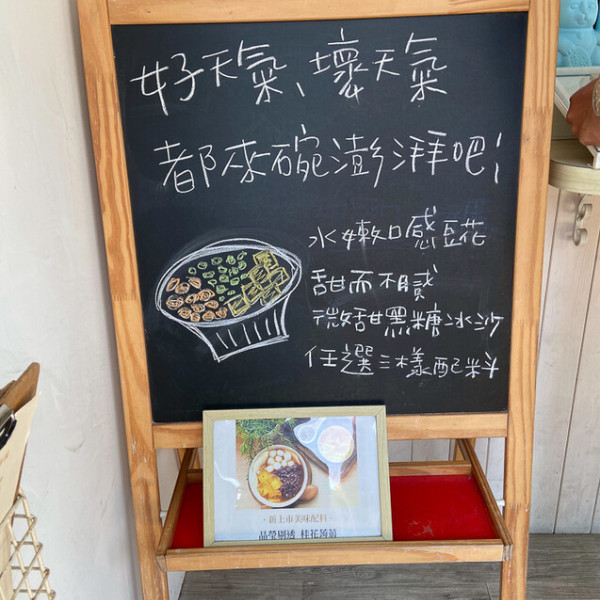 好天氣、壞天氣
都來碗澎湃吧!
水嫩口感豆花
甜而不膩
微甜黑糖冰沙
任選三樣配料
·新上市美味配料·
晶瑩剔透 桂花蒟蒻